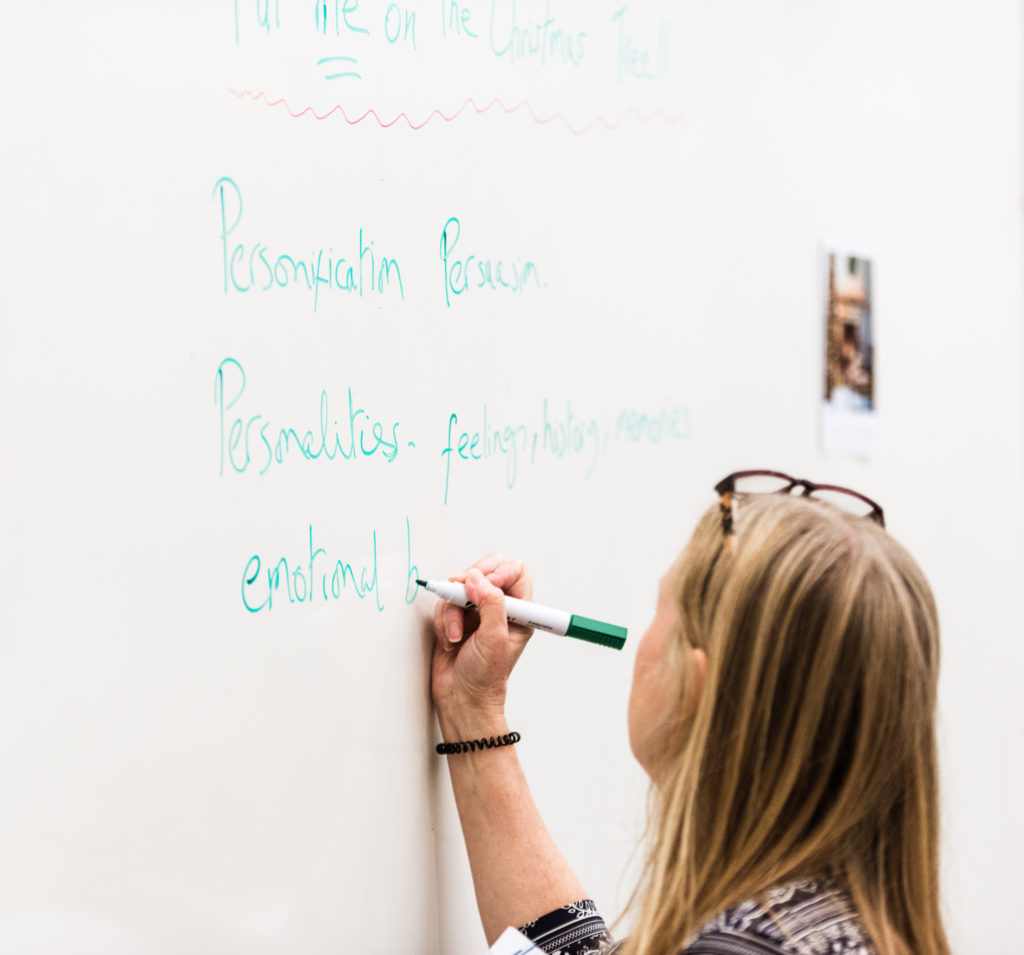 Put me on the Christmas Tree!!
Personification Persuasion.
Personalities - feelings, history, memories
emotional b